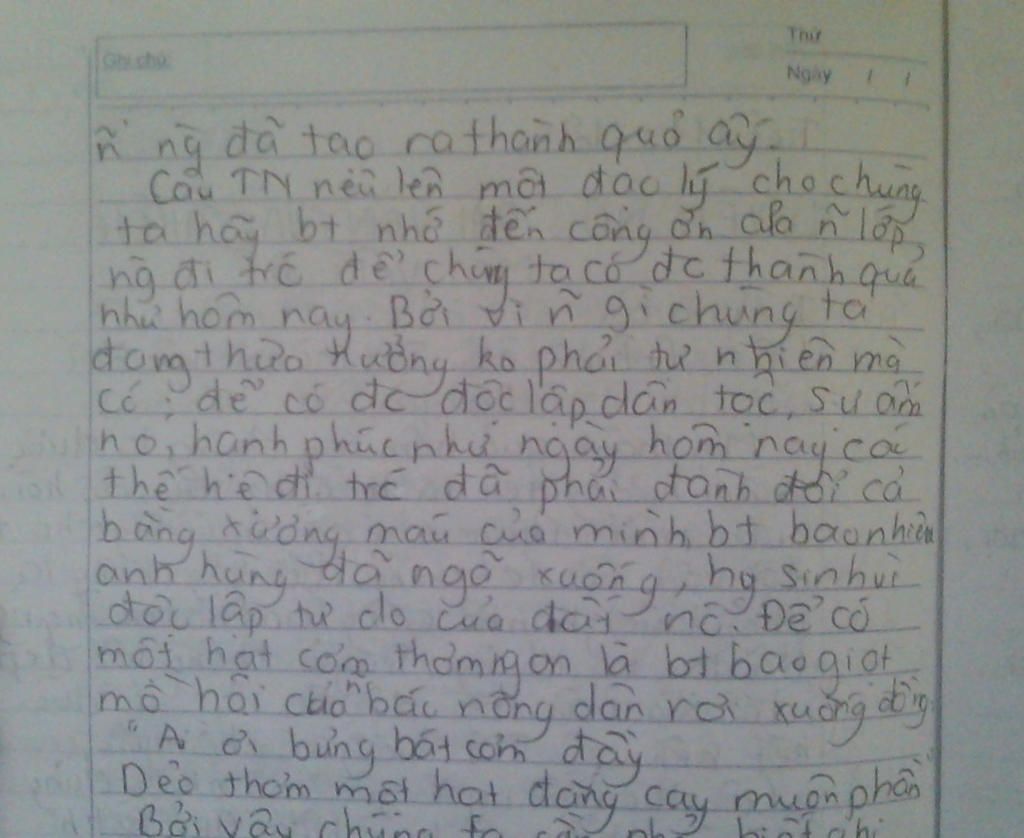 Ghi chú:
Thứ
Ngày / /
ñ ng đã tạo ra thành quả ấy.
Câu TN nêu lên một đạo lý cho chúng
ta hãy bt nhớ đến công ơn của ñ lớp
ng đi trc để chúng ta có đc thành quả
như hôm nay. Bởi vì ñ gì chúng ta
đang thừa hưởng ko phải tự nhiên mà
có; để có đc độc lập dân tộc, sự ấm
no, hạnh phúc như ngày hôm nay các
thế hệ đi trc đã phải đánh đổi cả
bằng xương máu của mình, bt bao nhiêu
anh hùng đã ngã xuống, hy sinh vì
độc lập tự do của đất nc. Để có
một hạt cơm thơm ngon là bt bao giọt
mồ hôi của ñ bác nông dân rơi xuống đồng
"Ai ơi bưng bát cơm đầy
Dẻo thơm một hạt đắng cay muôn phần"
Bởi vậy chúng ta cần phải biết ghi